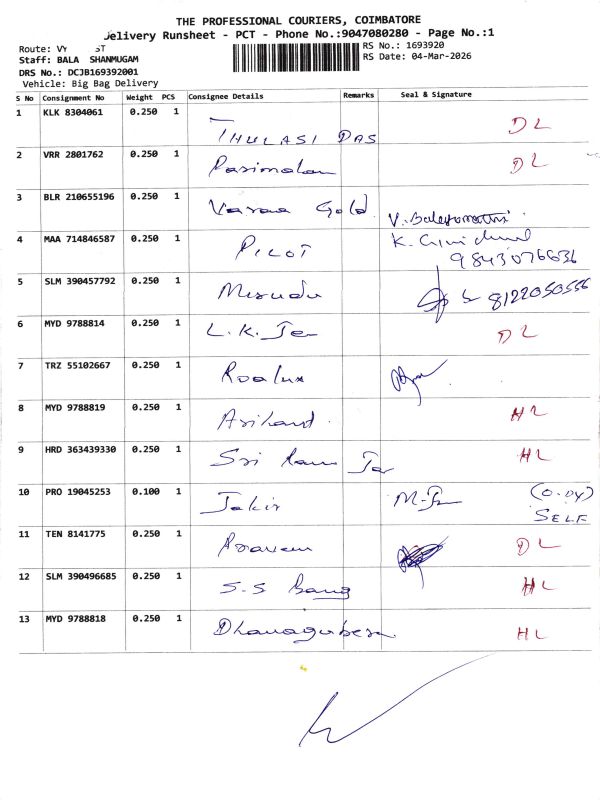 THE PROFESSIONAL COURIERS, COIMBATORE
Delivery Runsheet - PCT - Phone No.:9047080280 - Page No.:1
Route: VY ST
RS No.: 1693920
Staff: BALA SHANMUGAM
RS Date: 04-Mar-2026
DRS No.: DCJB169392001
Vehicle: Big Bag Delivery
S No Consignment No Weight PCS Consignee Details Remarks Seal & Signature
1 KLK 8304061 0.250 1 THULASI DAS DL
2 VRR 2801762 0.250 1 Parimalam DL
3 BLR 210655196 0.250 1 Varaa Gold V. Balasumathi
4 MAA 714846587 0.250 1 PILOT K.
9843076636
5 SLM 390457792 0.250 1 8122050556
6 MYD 9788814 0.250 1 L.K. Jer DL
7 TRZ 55102667 0.250 1 Roalux
8 MYD 9788819 0.250 1 Arihant HL
9 HRD 363439330 0.250 1 Sri Ram Jer HL
10 PRO 19045253 0.100 1 Jakir
SELF
11 TEN 8141775 0.250 1 DL
12 SLM 390496685 0.250 1 S.S Bang HL
13 MYD 9788818 0.250 1 Dhanaguberan HL